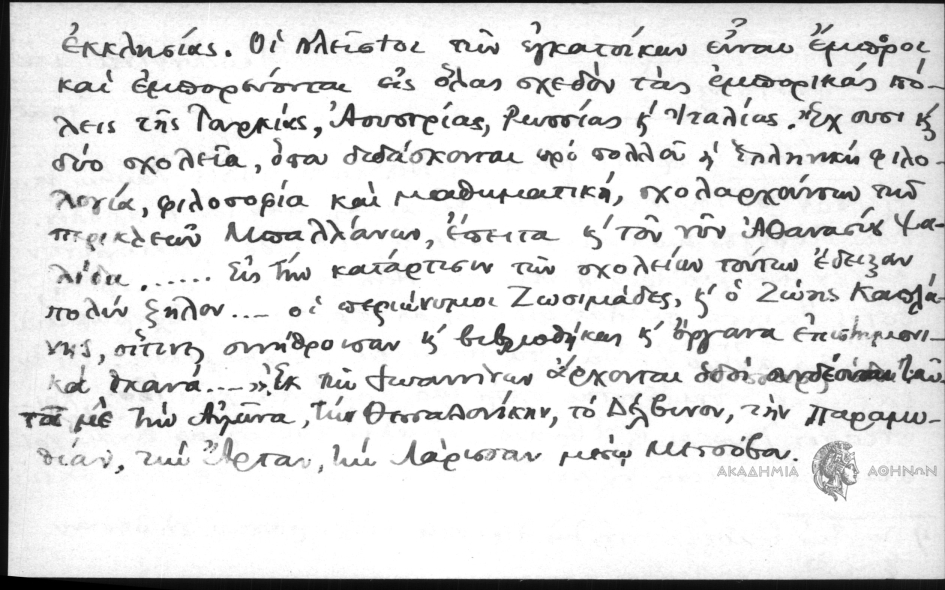 ἐκκλησίας. Οἱ πλεῖστοι τῶν ἐγκατοίκων εἶναι ἔμποροι
καὶ ἐμπορεύονται εἰς ὅλας σχεδὸν τὰς ἐμπορικάς πό-
λεις τῆς Τουρκίας, Αὐστρίας, Ρωσσίας κ' Ἰταλίας. Ἔχουσι κ'
δύο σχολεῖα, ὅπου διδάσκονται πρό πολλοῦ ἡ Ἑλληνική φιλο-
λογία, φιλοσοφία καὶ μαθηματική, σχολαρχούντων τῶν
περικλεῶν Μπαλλάνων, ἔπειτα κ' τοῦ νῦν Ἀθανασίου Ψα-
λίδα ...... Εἰς τὴν κατάρτισιν τῶν σχολείων τούτων ἔδειξαν
πολὺν ζῆλον .... οἱ περιώνυμοι Ζωσιμάδες, κ' ὁ Ζώης Καπλά-
νης, οἵτινες συνήθροισαν κ' βιβλιοθήκην κ' ὄργανα ἐπιστημονι-
κά ἱκανά....» Ἐκ τῶν Ἰωαννίνων ἄρχονται ὁδοὶ
μὲ τὴν Αὐλῶνα, τὴν Θεσσαλονίκην, τὸ Δέλβινον, τὴν Παραμυ-
θίαν, τὴν Ἄρταν, τὴν Λάρισσαν μέσῳ Μετσόβου.
ΑΚΑΔΗΜΙΑ ΑΘΗΝΩΝ